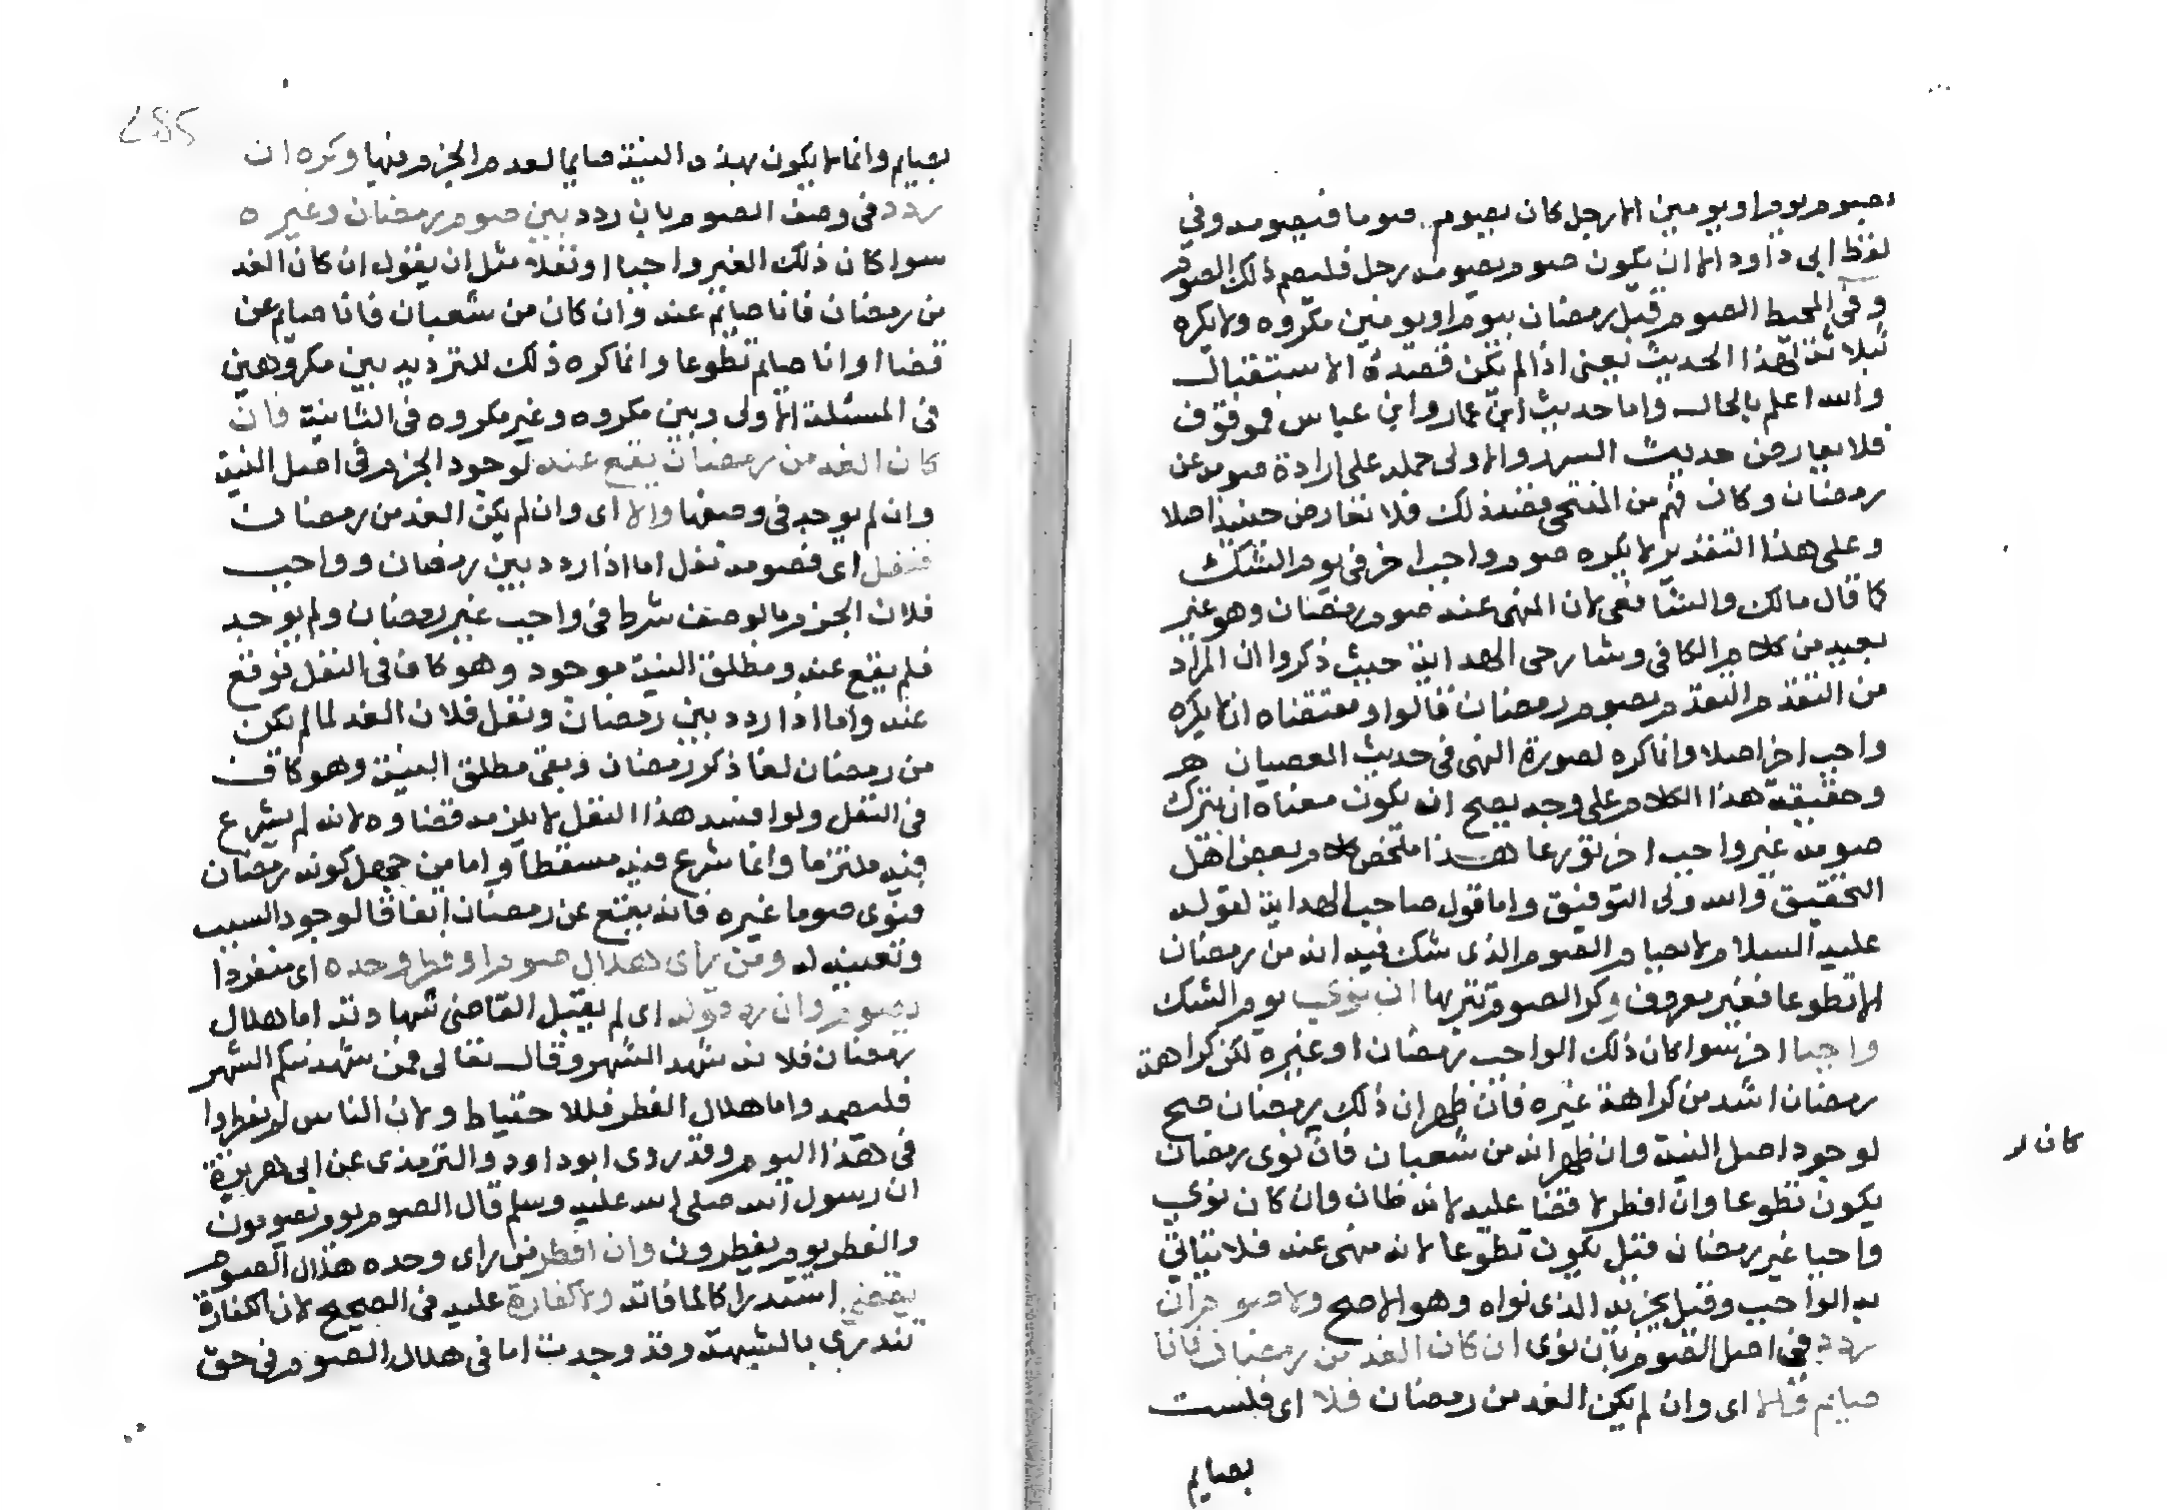 بصوم يوم او يومين الا رجل كان يصوم صوما فيصومه وفي
لفظ ابى داود الا ان يكون صوم يصومه رجل فليصم ذلك الصوم
وفى المحيط الصوم قبل رمضان بيوم او يومين مكروه ولا يكره
بثلاثة لهذا الحديث يعنى اذا لم يكن قصده الاستقبال
والله اعلم بالحال واما حديث ابن عمار وابن عباس فموقوف
فلا يعارض حديث السرر والاولى حمله على ارادة صومه عن
رمضان وكان فهم من المنتحى قصد ذلك فلا تعارض حينئذ اصلا
وعلى هذا التقدير لا يكره صوم واجب اخر فى يوم الشك
كما قال مالك والشافعى لان المنهى عنه صوم رمضان وهو غير
بعيد من كلام الكافى وشارحى الهداية حيث ذكروا ان المراد
من التقدم التقدم بصوم رمضان قالوا ومقتضاه ان لا يكره
واجب اخر اصلا وانما كره لصورة النهى فى حديث العصيان هـ
وحقيقة هذا الكلام على وجه يصح ان يكون معناه ان يترك
صومه غير واجب اخر تورعا هذا ملخص كلام بعض اهل
التحقيق والله ولى التوفيق واما قول صاحب الهداية لقوله
عليه السلام لا يصام الصوم الذى شك فيه انه من رمضان
الا تطوعا فغير معروف وكرا لصوم تنزيها ان ينوي يوم الشك
واجبا اخر سوا كان ذلك الواجب رمضان او غيره لكن كراهة
رمضان اشد من كراهة غيره فان ظهر ان ذلك رمضان صح
لوجود اصل النية وان ظهر انه من شعبان فان نوى رمضان
كان لو
يكون تطوعا وان افطر لا قضا عليه لانه ظان وان كان نوى
واجبا غير رمضان فقيل يكون تطوعا لانه منهى عنه فلا يتاتى
به الواجب وقيل يجزئه الذى نواه وهو الاصح ولا صوم ان
ردد فى اصل الصوم بان نوى ان كان الغد من رمضان فانا
صايم والا اى وان لم يكن الغد من رمضان فلا اى فلست
بصايم
285
بصيام وانما لا يكون بهذه النية صايما لعدم الجزم فيها وكره ان
ردد فى وصف الصوم بان ردد بين صوم رمضان وغيره
سوا كان ذلك الغير واجبا او نفلا مثل ان يقول ان كان الغد
من رمضان فانا صايم عنه وان كان من شعبان فانا صايم عن
قضا او انا صايم تطوعا وانما كره ذلك للترديد بين مكروهين
فى المسئلة الاولى وبين مكروه وغير مكروه فى الثانية فان
كان الغد من رمضان يقع عنه لوجود الجزم فى اصل النية
وان لم يوجد فى وصفها والا اى وان لم يكن الغد من رمضان
فنفل اى فصومه نفل اما اذا ردد بين رمضان وواجب
فلان الجزم بالوصف شرط فى واجب غير رمضان ولم يوجد
فلم يقع عنه ومطلق النية موجود وهو كاف فى النفل فوقع
عنه واما اذا ردد بين رمضان ونفل فلان الغد لما لم يكن
من رمضان لغا ذكر رمضان وبقى مطلق النية وهو كاف
فى النفل ولو افسد هذا النفل لا يلزمه قضاوه لانه لم يشرع
فيه ملتزما وانما شرع فيه مسقطا واما من جهل كونه رمضان
فنوى صوما غيره فانه يقع عن رمضان اتفاقا لوجود السبب
وتعيينه له ومن رأى هلال صوم او فطر وحده اى منفردا
يصوم وان رد قوله اى لم يقبل القاضى شهادته اما هلال
رمضان فلانه شهد الشهر وقال تعالى فمن شهد منكم الشهر
فليصمه واما هلال الفطر فللاحتياط ولان الناس لم يفطروا
فى هذا اليوم وقد روى ابو داود والترمذى عن ابى هريرة
ان رسول الله صلى الله عليه وسلم قال الصوم يوم يصومون
والفطر يوم يفطرون وان افطر من راى وحده هلال الصوم
يقضي استدراكا لما فاته ولا كفارة عليه فى الصحيح لان الكفارة
تندرى بالشبهة وقد وجدت اما فى هلال الصوم فى حق